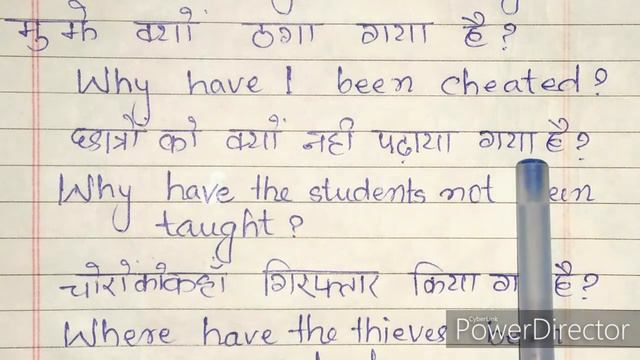 मुझे क्यों ठगा गया है?
Why have I been cheated?
छात्रों को क्यों नहीं पढ़ाया गया है?
Why have the students not een
taught?
चोरों को कहाँ गिरफ्तार किया ग है?
Where have the thieves
CyberLink
PowerDirector